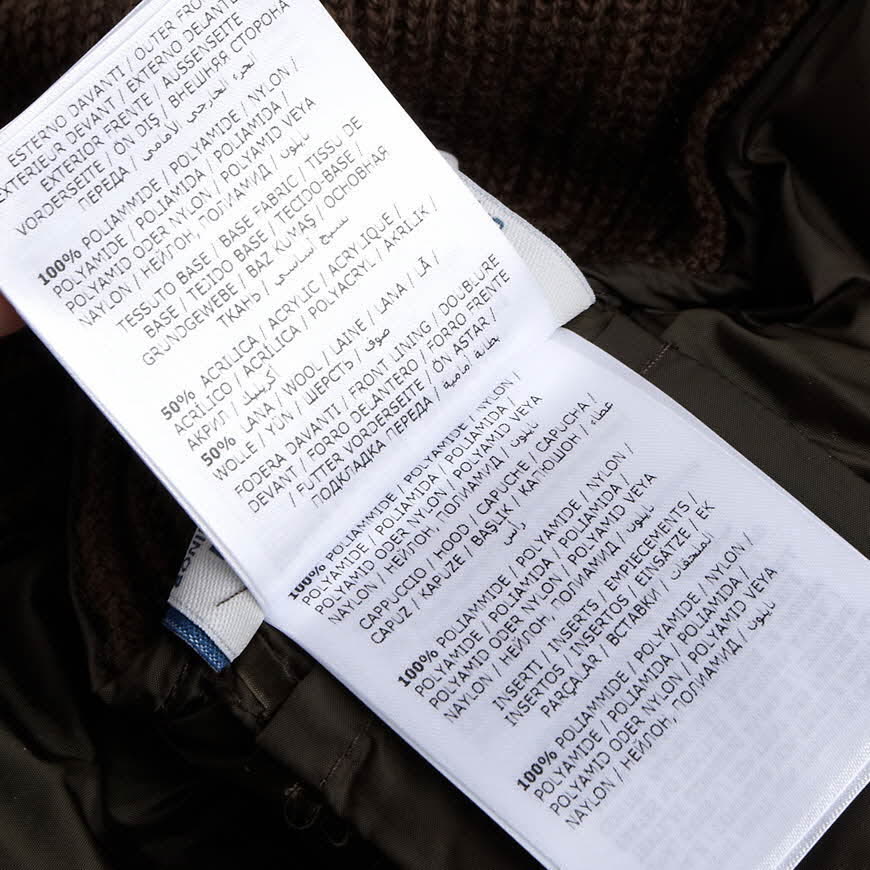 ESTERNO DAVANTI / OUTER FRO
EXTERIEUR DEVANT / EXTERNO DELANTE
EXTERIOR FRENTE / AUSSENSEITE
VORDERSEITE / ÖN DIS / ВНЕШНЯЯ СТОРОНА
ПЕРЕДА / الجزء الخارجي الأمامي
100% POLIAMMIDE / POLYAMIDE / NYLON /
POLYAMIDE / POLIAMIDA / POLIAMIDA /
POLYAMID ODER NYLON / POLYAMID VEYA
NAYLON / НЕЙЛОН, ПОЛИАМИД / نايلون
TESSUTO BASE / BASE FABRIC / TISSU DE
BASE / TEJIDO BASE / TECIDO-BASE /
GRUNDGEWEBE / BAZ KUMAŞ / ОСНОВНАЯ
ТКАНЬ / نسيج أساسي
50% ACRILICA / ACRYLIC / ACRYLIQUE /
ACRÍLICO / ACRÍLICA / POLYACRYL / AKRILIK /
АКРИЛ / أكريليك
50% LANA / WOOL / LAINE / LANA / LÃ /
WOLLE / YÜN / ШЕРСТЬ / صوف
FODERA DAVANTI / FRONT LINING / DOUBLURE
DEVANT / FORRO DELANTERO / FORRO FRENTE
/ FUTTER VORDERSEITE / ÖN ASTAR /
ПОДКЛАДКА ПЕРЕДА / بطانة أمامية
100% POLIAMMIDE / POLYAMIDE / NYLON /
POLYAMIDE / POLIAMIDA / POLIAMIDA /
POLYAMID ODER NYLON / POLYAMID VEYA
NAYLON / НЕЙЛОН, ПОЛИАМИД / نايلون
CAPPUCCIO / HOOD / CAPUCHE / CAPUCHA /
CAPUZ / KAPUZE / BAŞLIK / КАПЮШОН / غطاء
رأس
100% POLIAMMIDE / POLYAMIDE / NYLON /
POLYAMIDE / POLIAMIDA / POLIAMIDA /
POLYAMID ODER NYLON / POLYAMID VEYA
NAYLON / НЕЙЛОН, ПОЛИАМИД / نايلون
INSERTI / INSERTS / EMPIECEMENTS /
INSERTOS / INSERTOS / EINSÄTZE / EK
PARÇALAR / ВСТАВКИ / الملحقات
100% POLIAMMIDE / POLYAMIDE / NYLON /
POLYAMIDE / POLIAMIDA / POLIAMIDA /
POLYAMID ODER NYLON / POLYAMID VEYA
NAYLON / НЕЙЛОН, ПОЛИАМИД / نايلون